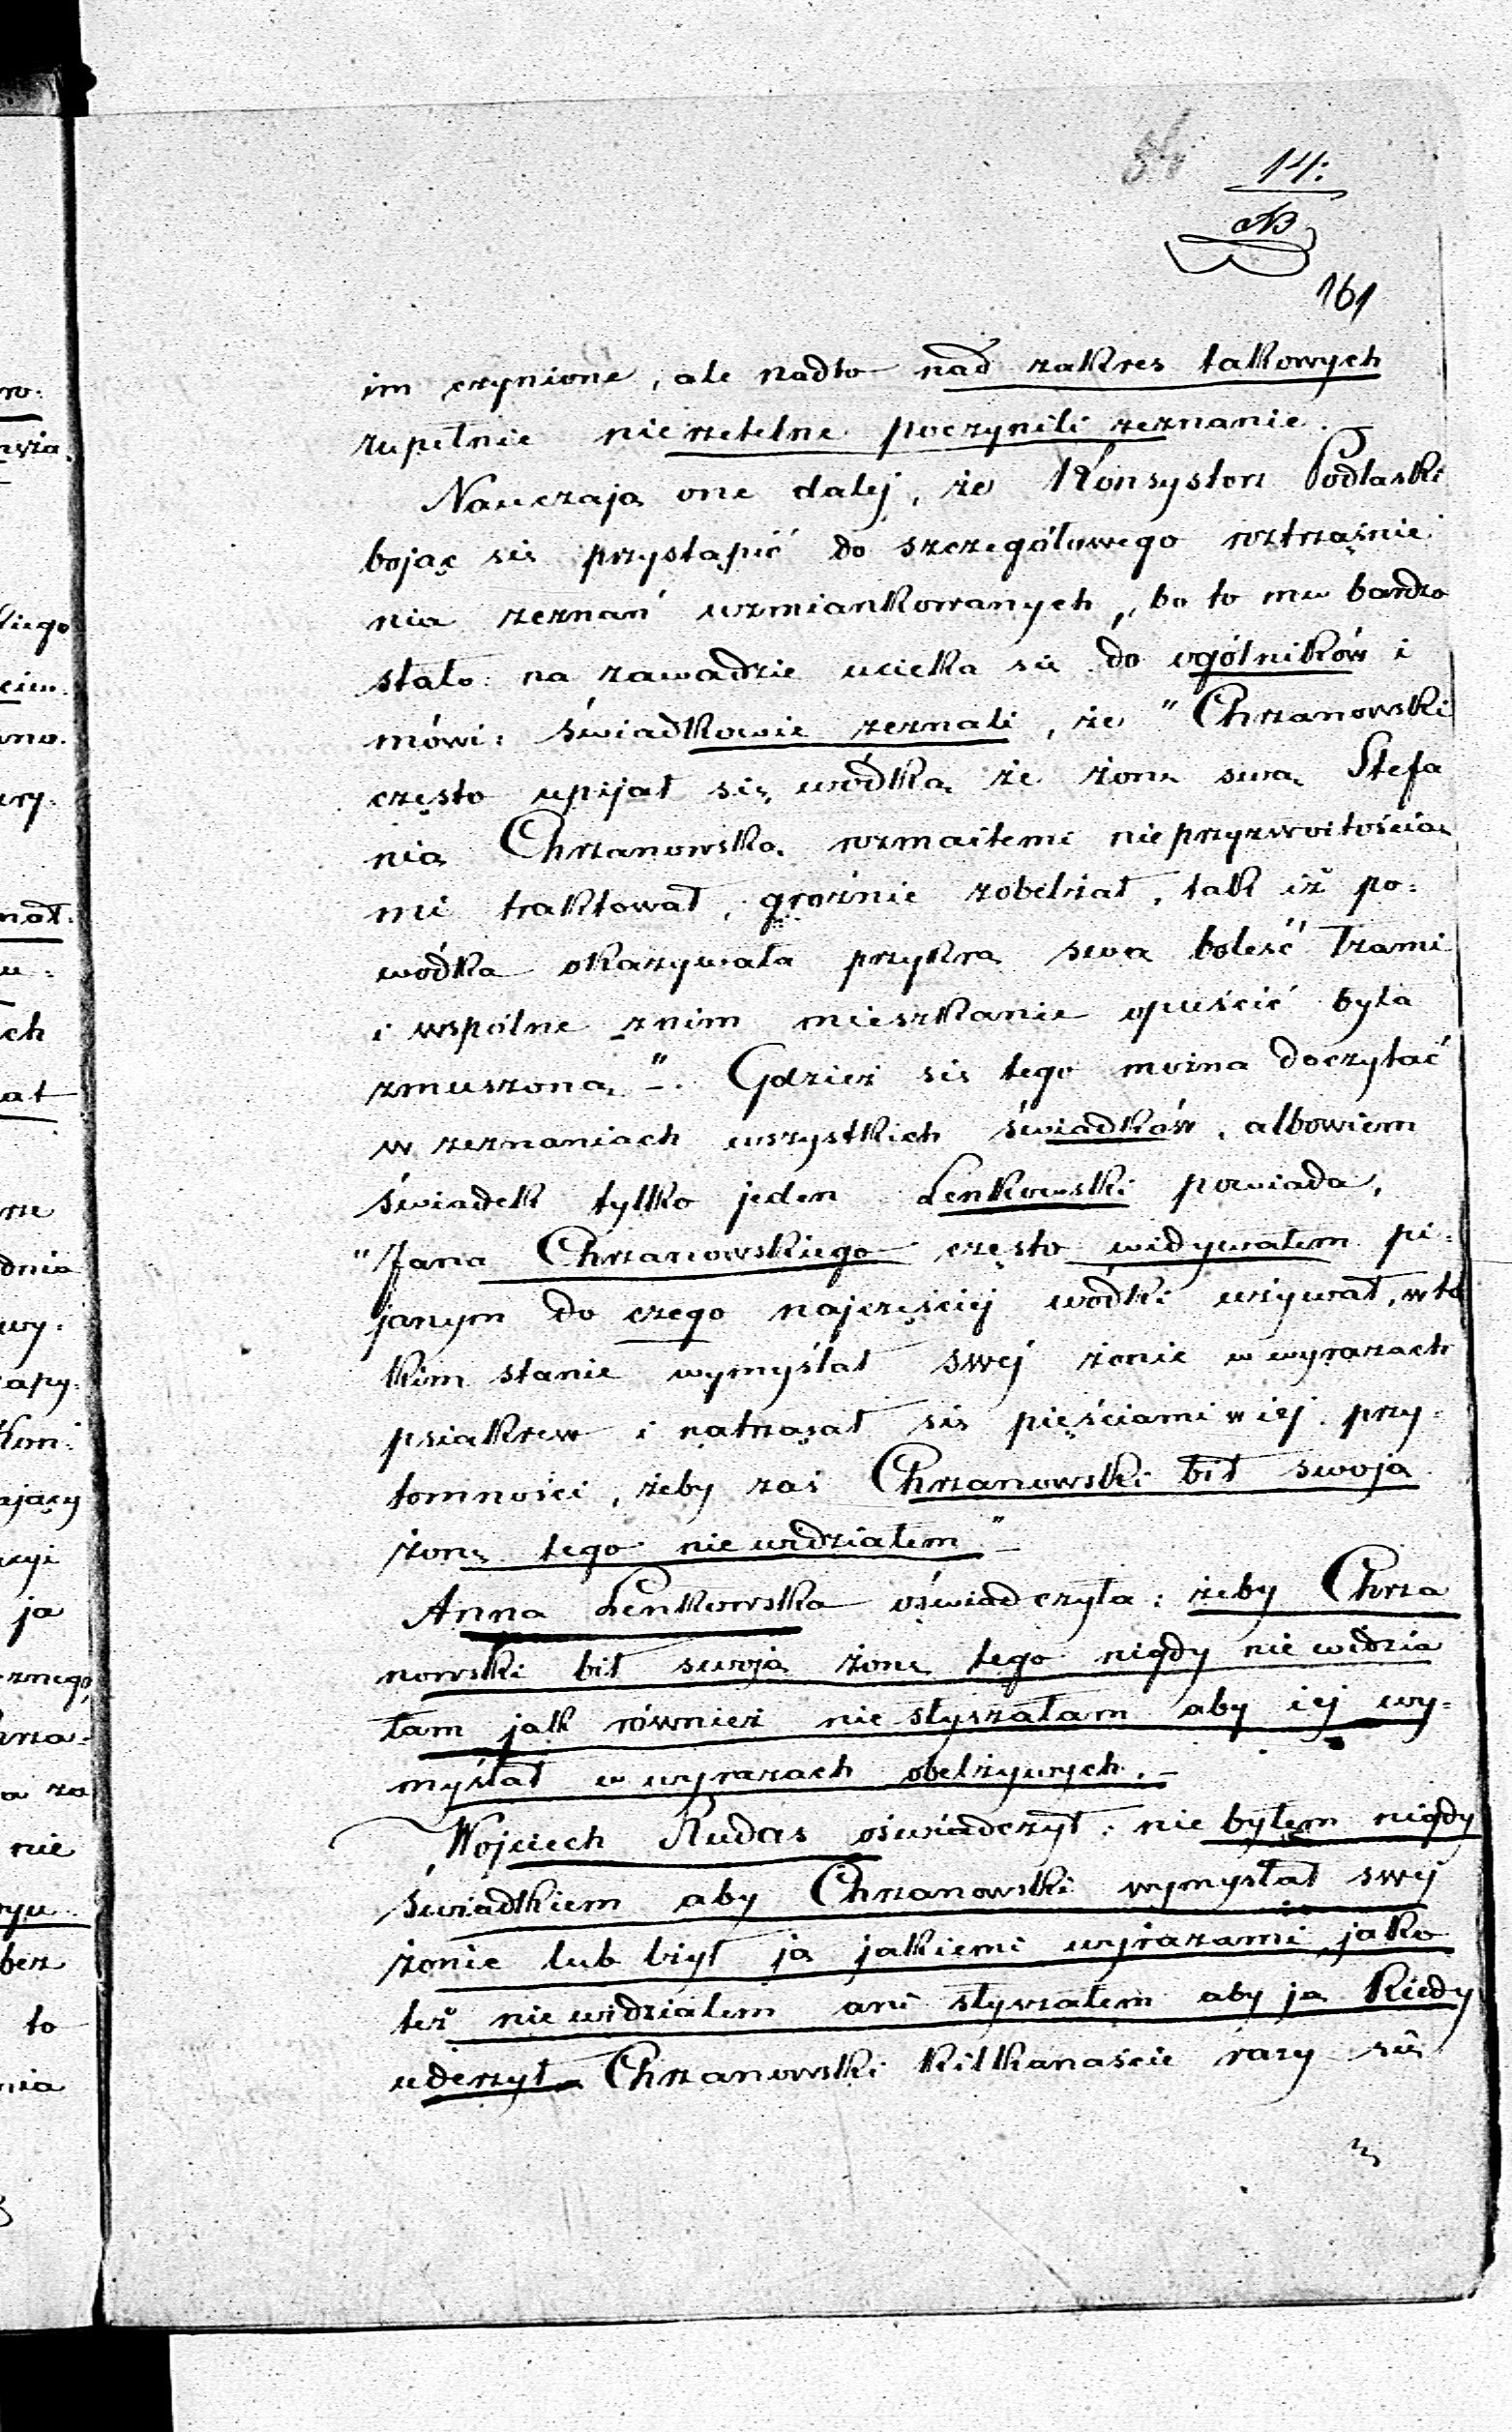 14:
161
im czynione, ale nadto nad zakres takowych
zupełnie nierzetelne poczynili zeznanie.
Nauczają one dalej, że Konsystorz Podlaski
bojąc się przystąpić do szczegółowego roztrząśnie
nia zeznań wzmiankowanych, bo to mu bardzo
stało na zawadzie ucieka się do ogólników i
mówi: świadkowie zeznali, że "Chrzanowski
często upijał się wódką że żonę swą Stefa
nią Chrzanowską rozmaitemi nieprzyzwoitościa
mi traktował, groźnie zobelżał, tak iż po:
wódka okazywała przykrą swą boleść łzami
i wspólne znim mieszkanie opuścić była
zmuszoną"–. Gdzież się tego można doczytać
w zeznaniach wszystkich świadków, albowiem
świadek tylko jeden Lenkowski powiada,
"Jana Chrzanowskiego często widywałem pi:
janym do czego najczęściej wódki używał, w ta
kim stanie wymyślał swej żonie w wyrazach
psiakrew i natrząsał się pięściami w jej przy:
tomności, żeby zaś Chrzanowski bił swoją
żonę tego nie widziałem"–
Anna Lenkowska oświadczyła: żeby Chrza
nowski bił swoją żonę tego nigdy nie widzia
łam jak również nie słyszałam aby jej wy:
myślał w wyrazach obelżywych.–
Wojciech Rudas oświadczył: nie byłem nigdy
świadkiem aby Chrzanowski wymyślał swej
żonie lub lżył ją jakiemi wyrazami, jako
też nie widziałem ani słyszałem aby ją kiedy
uderzył– Chrzanowski kilkanaście razy się